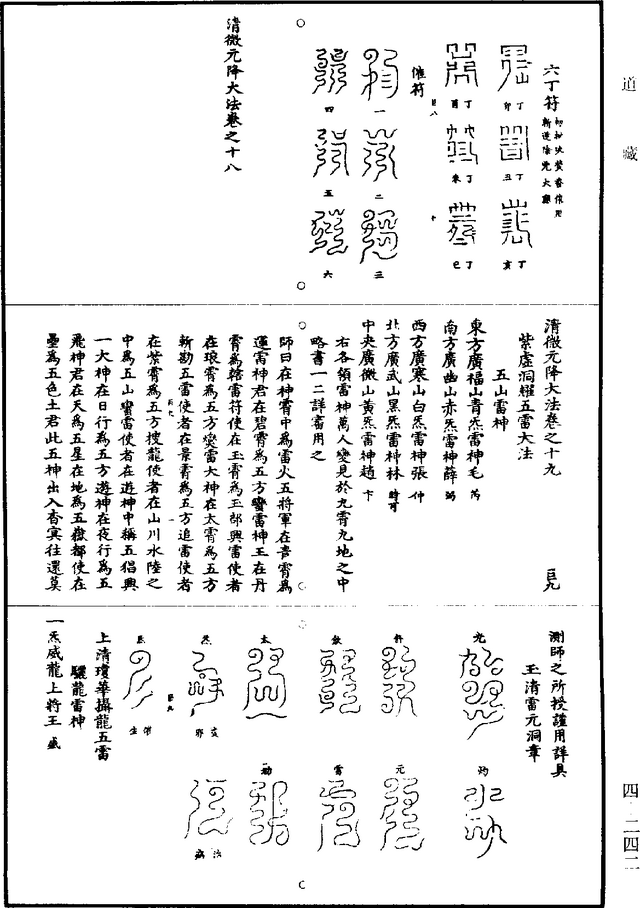 道藏
六丁符
丁卯
丁丑
丁亥
丁酉
丁未
丁巳
催符
一
二
三
四
五
六
清微元降大法卷之十八
清微元降大法卷之十九
巨九
紫虛洞耀五雷大法
五山雷神
東方廣福山青炁雷神毛
南方廣幽山赤炁雷神薛
西方廣寒山白炁雷神張仲
北方廣武山黑炁雷神林時可
中央廣微山黃炁雷神趙卞
右各領雷神萬人變見於九霄九地之中
略書一二詳審用之
師曰在神霄中為雷火五將軍在青霄為
運雷神君在碧霄為五方蠻雷神王在丹
霄為轄雷符使在玉霄為玉部興雷使者
在琅霄為五方燮雷大神在太霄為五方
斬勘五雷使者在景霄為五方追雷使者
在紫霄為五方搜龍使者在山川水陸之
中為五山蠻雷使者在遊神中稱五猖興
一大神在日行為五方遊神在夜行為五
飛神君在天為五星在地為五嶽都使在
壘為五色土君此五神出入杳冥往還莫
測師之所授謹用詳具
玉清雷元洞章
元
雷
太
炁
上清瓊華攝龍五雷
驪龍雷神
一炁威龍上將王盛
四二四二